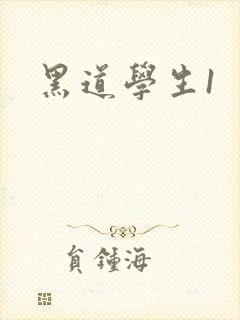 黑道學生1
負鍾海